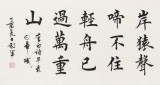 岸猿聲
啼不住
輕舟已
過萬重
山
李白詩早發